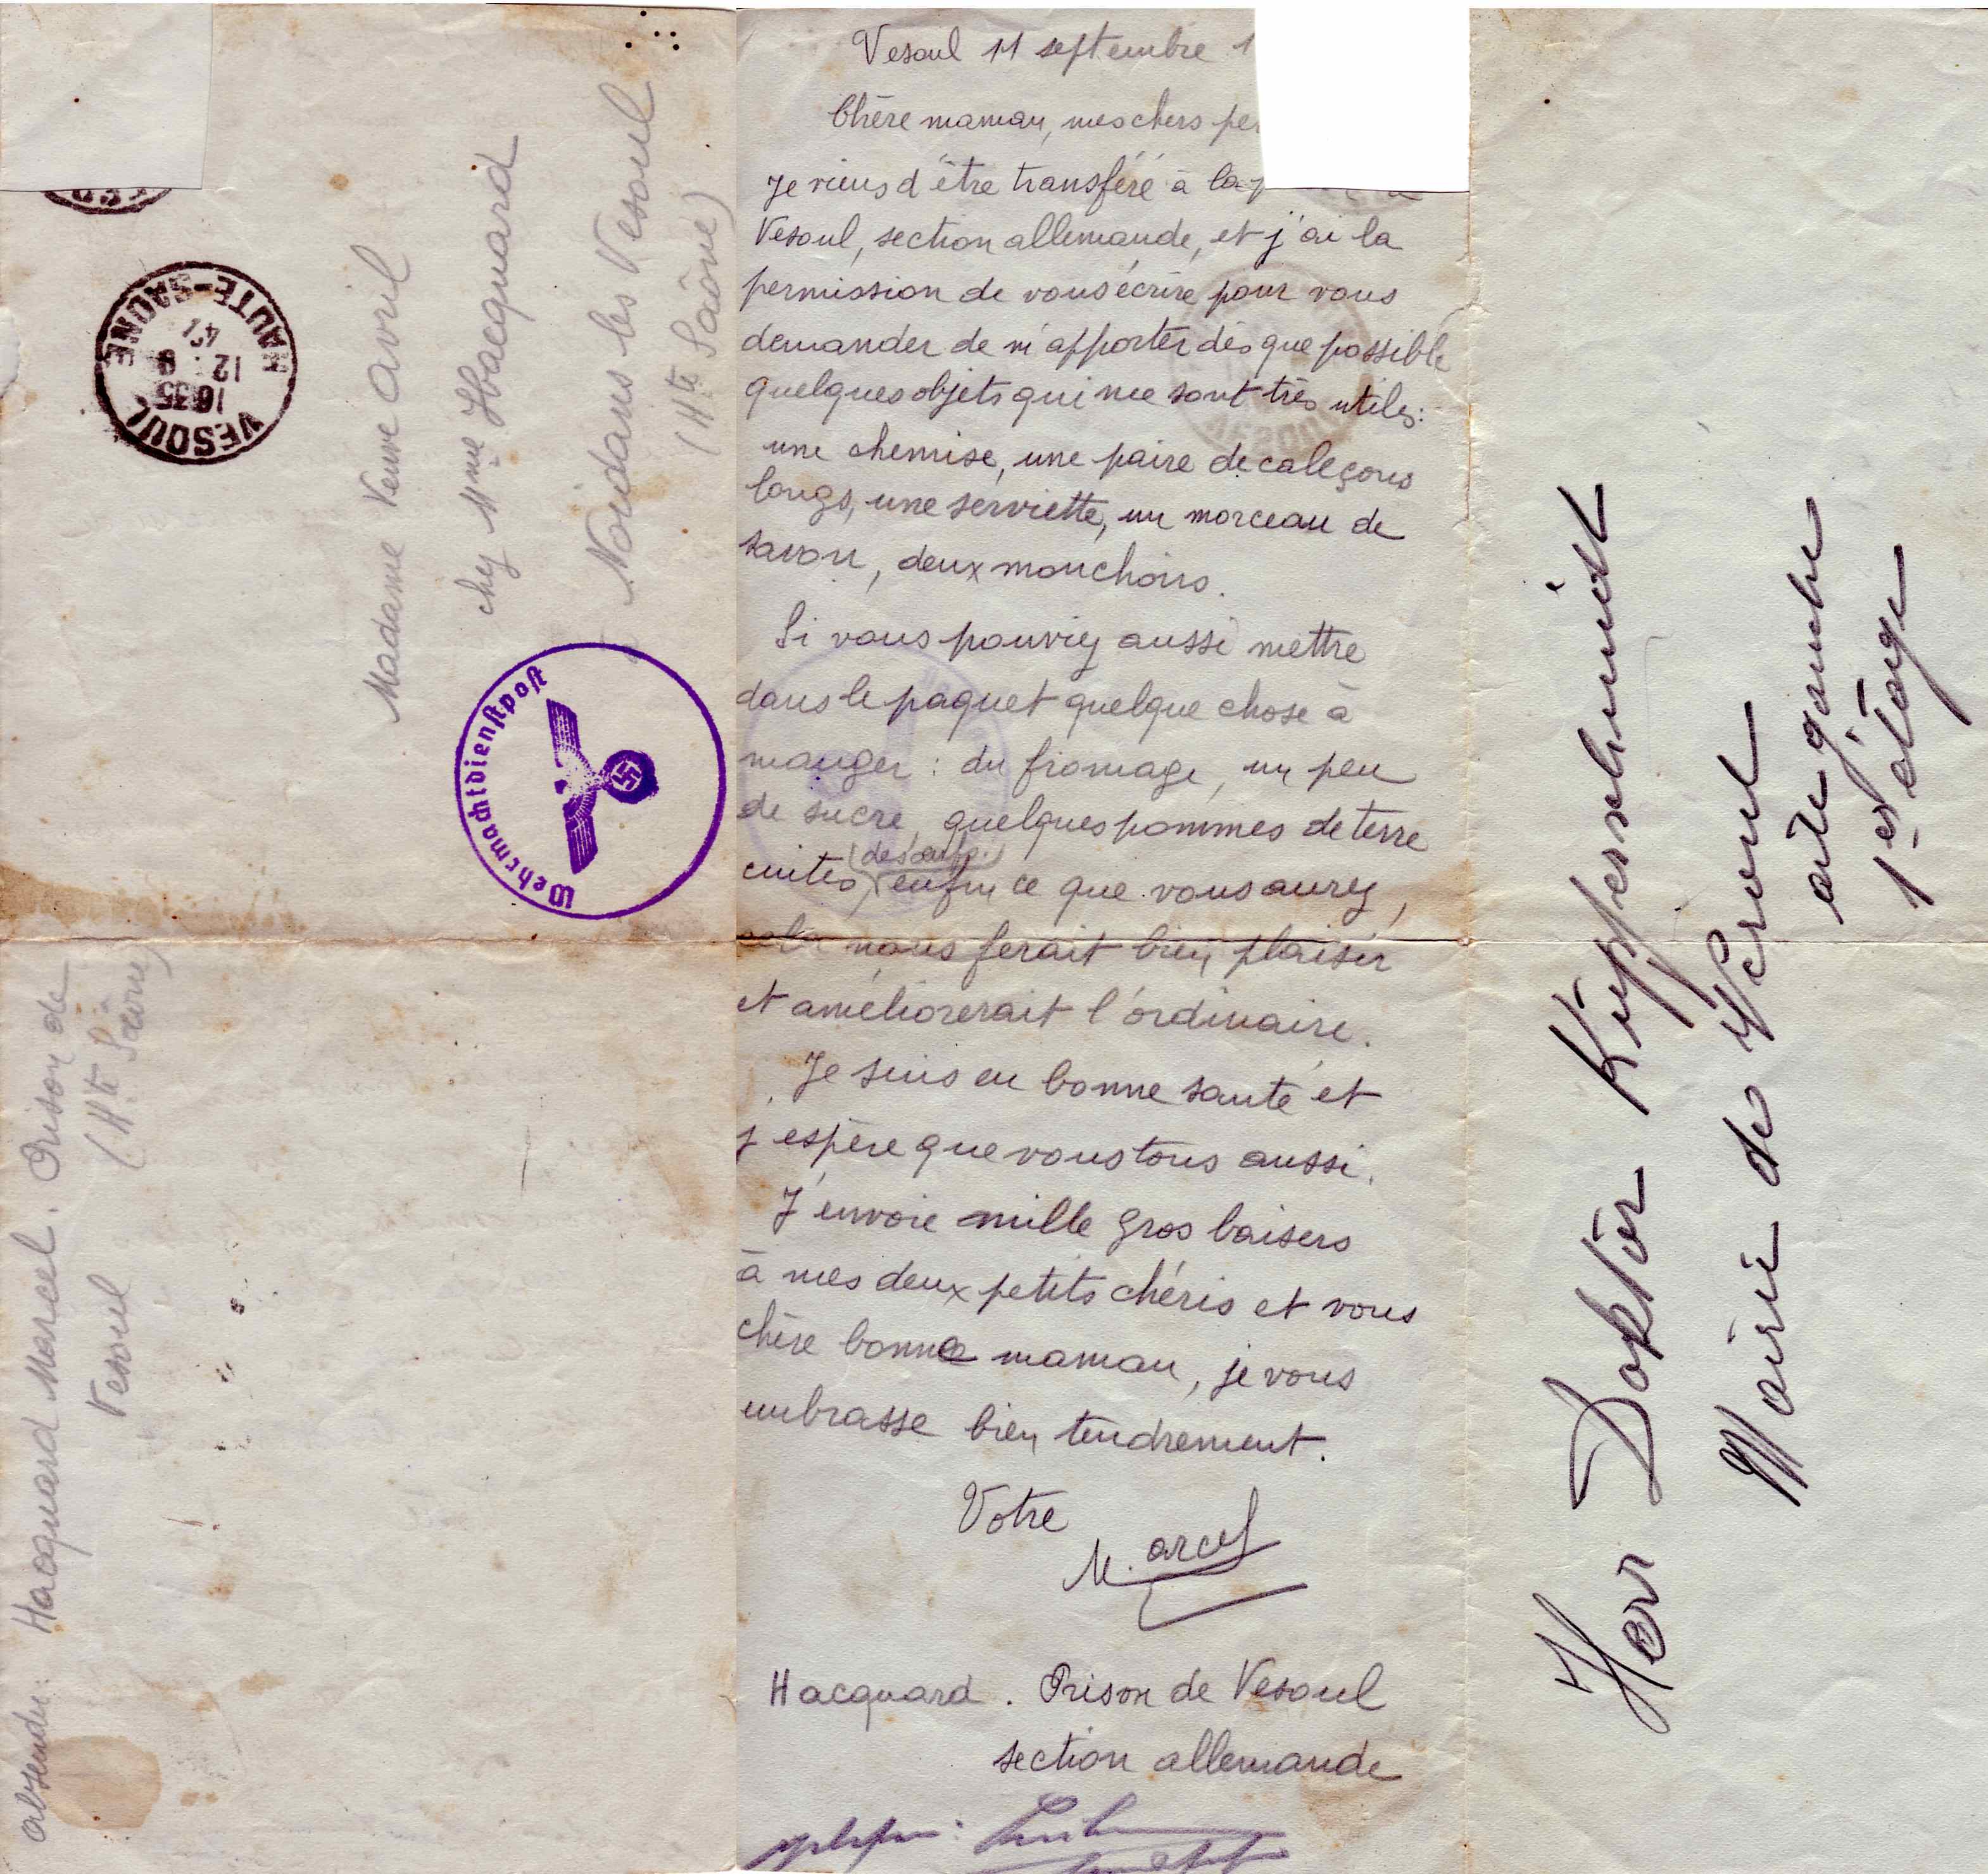 VESOUL
1635
12 9
41
HAUTE-SAONE
Madame Veuve Avril
chez Mme Hacquard
Noidans les Vesoul
(Hte Saône)
Wehrmachtdienstpost
absender: Hacquard Marcel. Prison de
Vesoul (Hte Saône)
Vesoul 11 septembre 1
Chère maman, mes chers
Je viens d'être transféré à la
Vesoul, section allemande, et j'ai la
permission de vous écrire pour vous
demander de m'apporter dès que possible
quelques objets qui me sont très utiles:
une chemise, une paire de caleçons
longs, une serviette, un morceau de
savon, deux mouchoirs.
Si vous pouviez aussi mettre
dans le paquet quelque chose à
manger : du fromage, un peu
de sucre, quelques pommes de terre
cuites, (des œufs.) enfin ce que vous aurez,
cela nous ferait bien plaisir
et améliorerait l'ordinaire.
Je suis en bonne santé et
j'espère que vous tous aussi.
J'envoie mille gros baisers
à mes deux petits chéris et vous
chère bonne maman, je vous
embrasse bien tendrement.
Votre
Marcel
Hacquard. Prison de Vesoul
section allemande
Herr Doktor Kupperschmidt
Mairie de Vesoul
aile gauche
1er étage